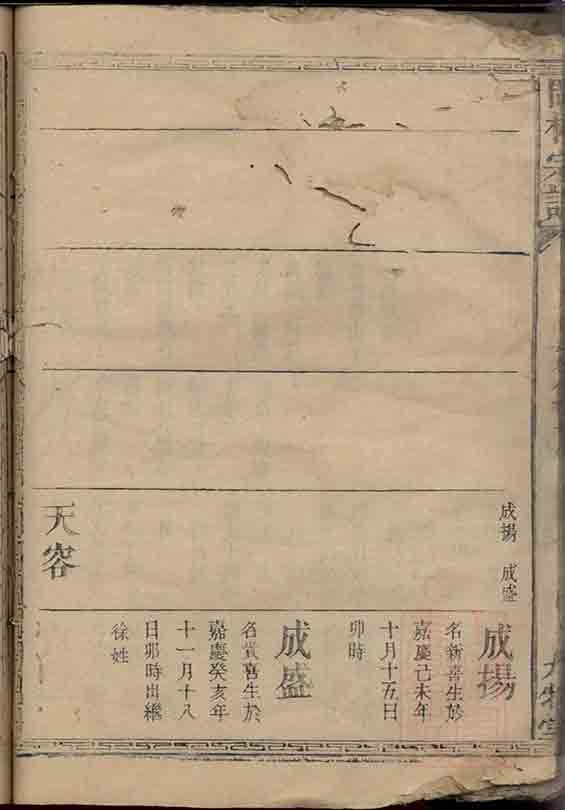 宗譜
成揚 成盛
天容
成揚
名新喜生於
嘉慶己未年
十月十五日
卯時
成盛
名貴喜生於
嘉慶癸亥年
十一月十八
日卯時出繼
徐姓